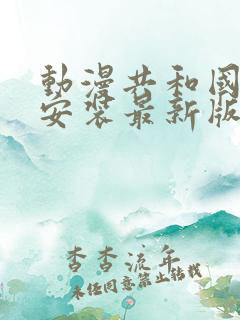 動漫共和國
安裝最新版
杳杳流年
未经同意禁止转载